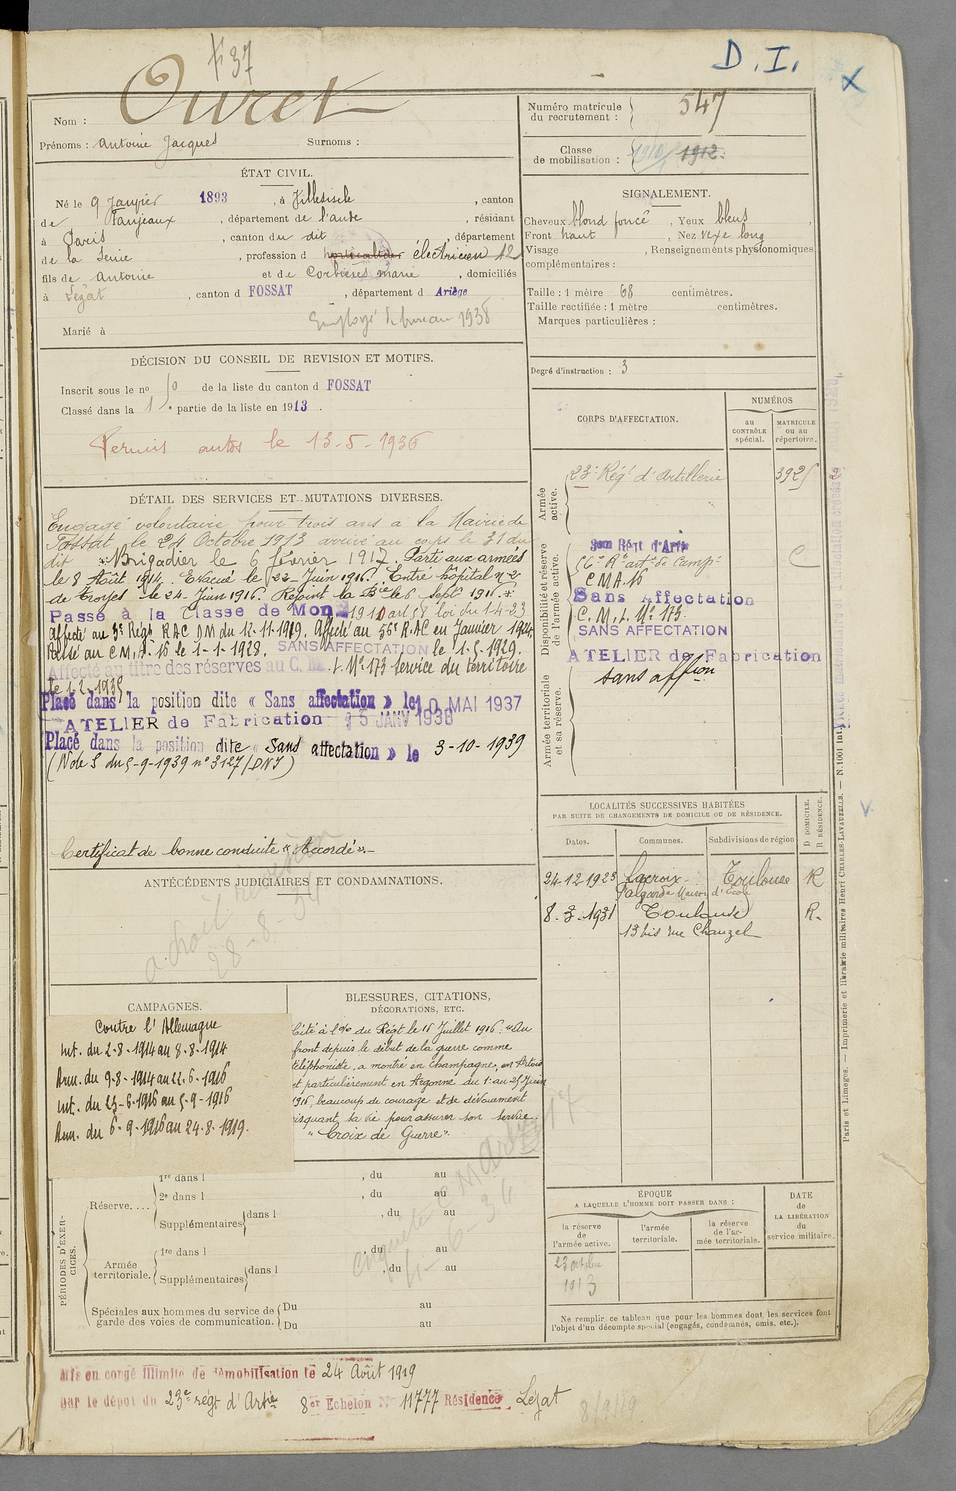 +37
D. I.
X
Nom : Ouret
Prénoms : Antoine Jacques Surnoms :
Numéro matricule du recrutement : 547
Classe de mobilisation : 1910 1912
ÉTAT CIVIL.
Né le 9 Janvier 1893, à Villesiscle, canton
de Fanjeaux, département de l'aude, résidant
à Paris, canton du dit, département
de la Seine, profession d électricien A2
fils de Antoine et de Corbières marie, domiciliés
à Lézat, canton d FOSSAT, département d Ariège
Employé de bureau 1938
Marié à
SIGNALEMENT.
Cheveux blond foncé, Yeux bleus,
Front haut, Nez vexe long
Visage , Renseignements physionomiques
complémentaires :
Taille : 1 mètre 68 centimètres.
Taille rectifiée : 1 mètre centimètres.
Marques particulières :
Degré d'instruction : 3
DÉCISION DU CONSEIL DE REVISION ET MOTIFS.
Inscrit sous le no 10 de la liste du canton d FOSSAT
Classé dans la 1re partie de la liste en 1913.
Permis autos le 13-5-1936
DÉTAIL DES SERVICES ET MUTATIONS DIVERSES.
Engagé volontaire pour trois ans à la Mairie de
Fossat, le 24 Octobre 1913 arrivé au corps le 31 du
dit Brigadier le 6 février 1917. Parti aux armées
le 8 Août 1914. Evacué le 22 Juin 1916. Entré hôpital no 2
de Troyes le 24 Juin 1916. Rejoint la Bie le 6 Septe 1916.
Passé à la Classe de Mon 1910 art 58 loi du 1-4-23
Affecté au 3e Régt RAC DM du 12-11-1919. Affecté au 56e R.AC en Janvier 1924.
Passé au CM.A. 16 le 1-1-1928. SANS AFFECTATION le 1-5-1929.
Affecté au titre des réserves au C. M. I. No 173 Service du territoire
le 1-2-1935
Placé dans la position dite « Sans affectation » le 10 MAI 1937
ATELIER de Fabrication 5 JANV 1938
Placé dans la position dite « Sans affectation » le 3-10-1939
(Note S du 5-9-1939 no 3127/DN7)
Certificat de bonne conduite « Accordé ».
CORPS D'AFFECTATION.
NUMÉROS
au CONTRÔLE spécial.
MATRICULE ou au répertoire.
Armée active.
23e Régt d'Artillerie 3925
Disponibilité et réserve de l'armée active.
3em Régt d'Artie
56e Rt artie de Camp: C
CMA 16
Sans Affectation
C. M. I. No 173
SANS AFFECTATION
ATELIER de Fabrication
Armée territoriale et sa réserve.
sans affion
LOCALITÉS SUCCESSIVES HABITÉES
PAR SUITE DE CHANGEMENTS DE DOMICILE OU DE RÉSIDENCE.
D DOMICILE. R RÉSIDENCE.
Dates. Communes. Subdivisions de région
24-12-1923 Lacroix Falgarde Maison d'Ecole Toulouse R
8-3-1931 Toulouse R.
13 bis rue Chauzel
ANTÉCÉDENTS JUDICIAIRES ET CONDAMNATIONS.
28-8-34
CAMPAGNES.
Contre l'Allemagne
Int. du 2-8-1914 au 8-8-1914
Arm. du 9-8-1914 au 22-6-1916
Int. du 23-6-1916 au 5-9-1916
Arm. du 6-9-1916 au 24-8-1919.
BLESSURES, CITATIONS,
DÉCORATIONS, ETC.
Cité à l'ordre du Régt le 15 Juillet 1916. "Au
front depuis le début de la guerre comme
téléphoniste, a montré en Champagne, en Artois
et particulièrement en Argonne du 1er au 25 Juin
1916, beaucoup de courage et de dévouement
risquant sa vie pour assurer son service."
"Croix de Guerre".
PÉRIODES D'EXERCICES.
Réserve....
1re dans l , du au
2e dans l , du au
Supplémentaires dans l , du au
Armée territoriale.
1re dans l , du au
Supplémentaires dans l , du au
Spéciales aux hommes du service de garde des voies de communication.
Du au
Du au
ÉPOQUE
A LAQUELLE L'HOMME DOIT PASSER DANS :
la réserve de l'armée active.
l'armée territoriale.
la réserve de l'armée territoriale.
DATE de LA LIBÉRATION du service militaire.
23 octobre
1913
Ne remplir ce tableau que pour les hommes dont les services font
l'objet d'un décompte spécial (engagés, condamnés, omis, etc.).
Mis en congé illimité de démobilisation le 24 Août 1919
par le dépôt du 23e régt d'Artie 8er Echelon No 11777 Résidence Lézat
Paris et Limoges. — Imprimerie et librairie militaires Henri CHARLES-LAVAUZELLE. — N. 1001 int.